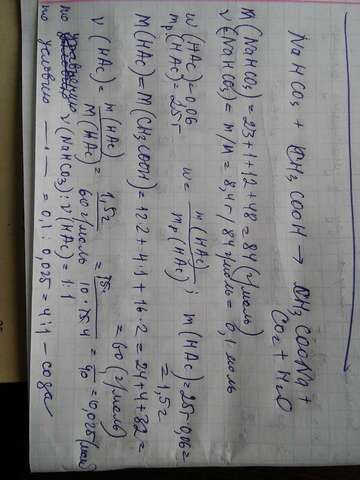 NaHCO₃ + CH₃COOH → CH₃COONa +
CO₂ + H₂O
M(NaHCO₃) = 23+1+12+48 = 84 (г/моль)
ν(NaHCO₃) = m/M = 8,4г/84г/моль = 0,1 моль
w(HAc) = 0,06
mр(HAc) = 25г
w = m(HAc)/mр(HAc); m(HAc) = 25·0,06 =
= 1,5г
M(HAc) = M(CH₃COOH) = 12·2+4·1+16·2 = 24+4+32 =
= 60 (г/моль)
ν(HAc) = m(HAc)/M(HAc) = 1,5г/60г/моль = 0,025 (моль)
по уравнению ν(NaHCO₃):ν(HAc) = 1:1
по условию —"— = 0,1:0,025 = 4:1 – сода